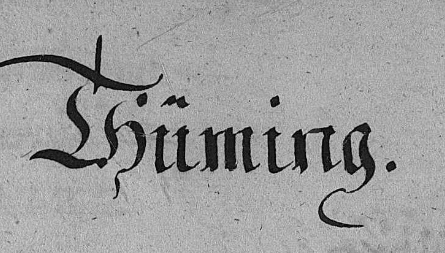 Thüming.